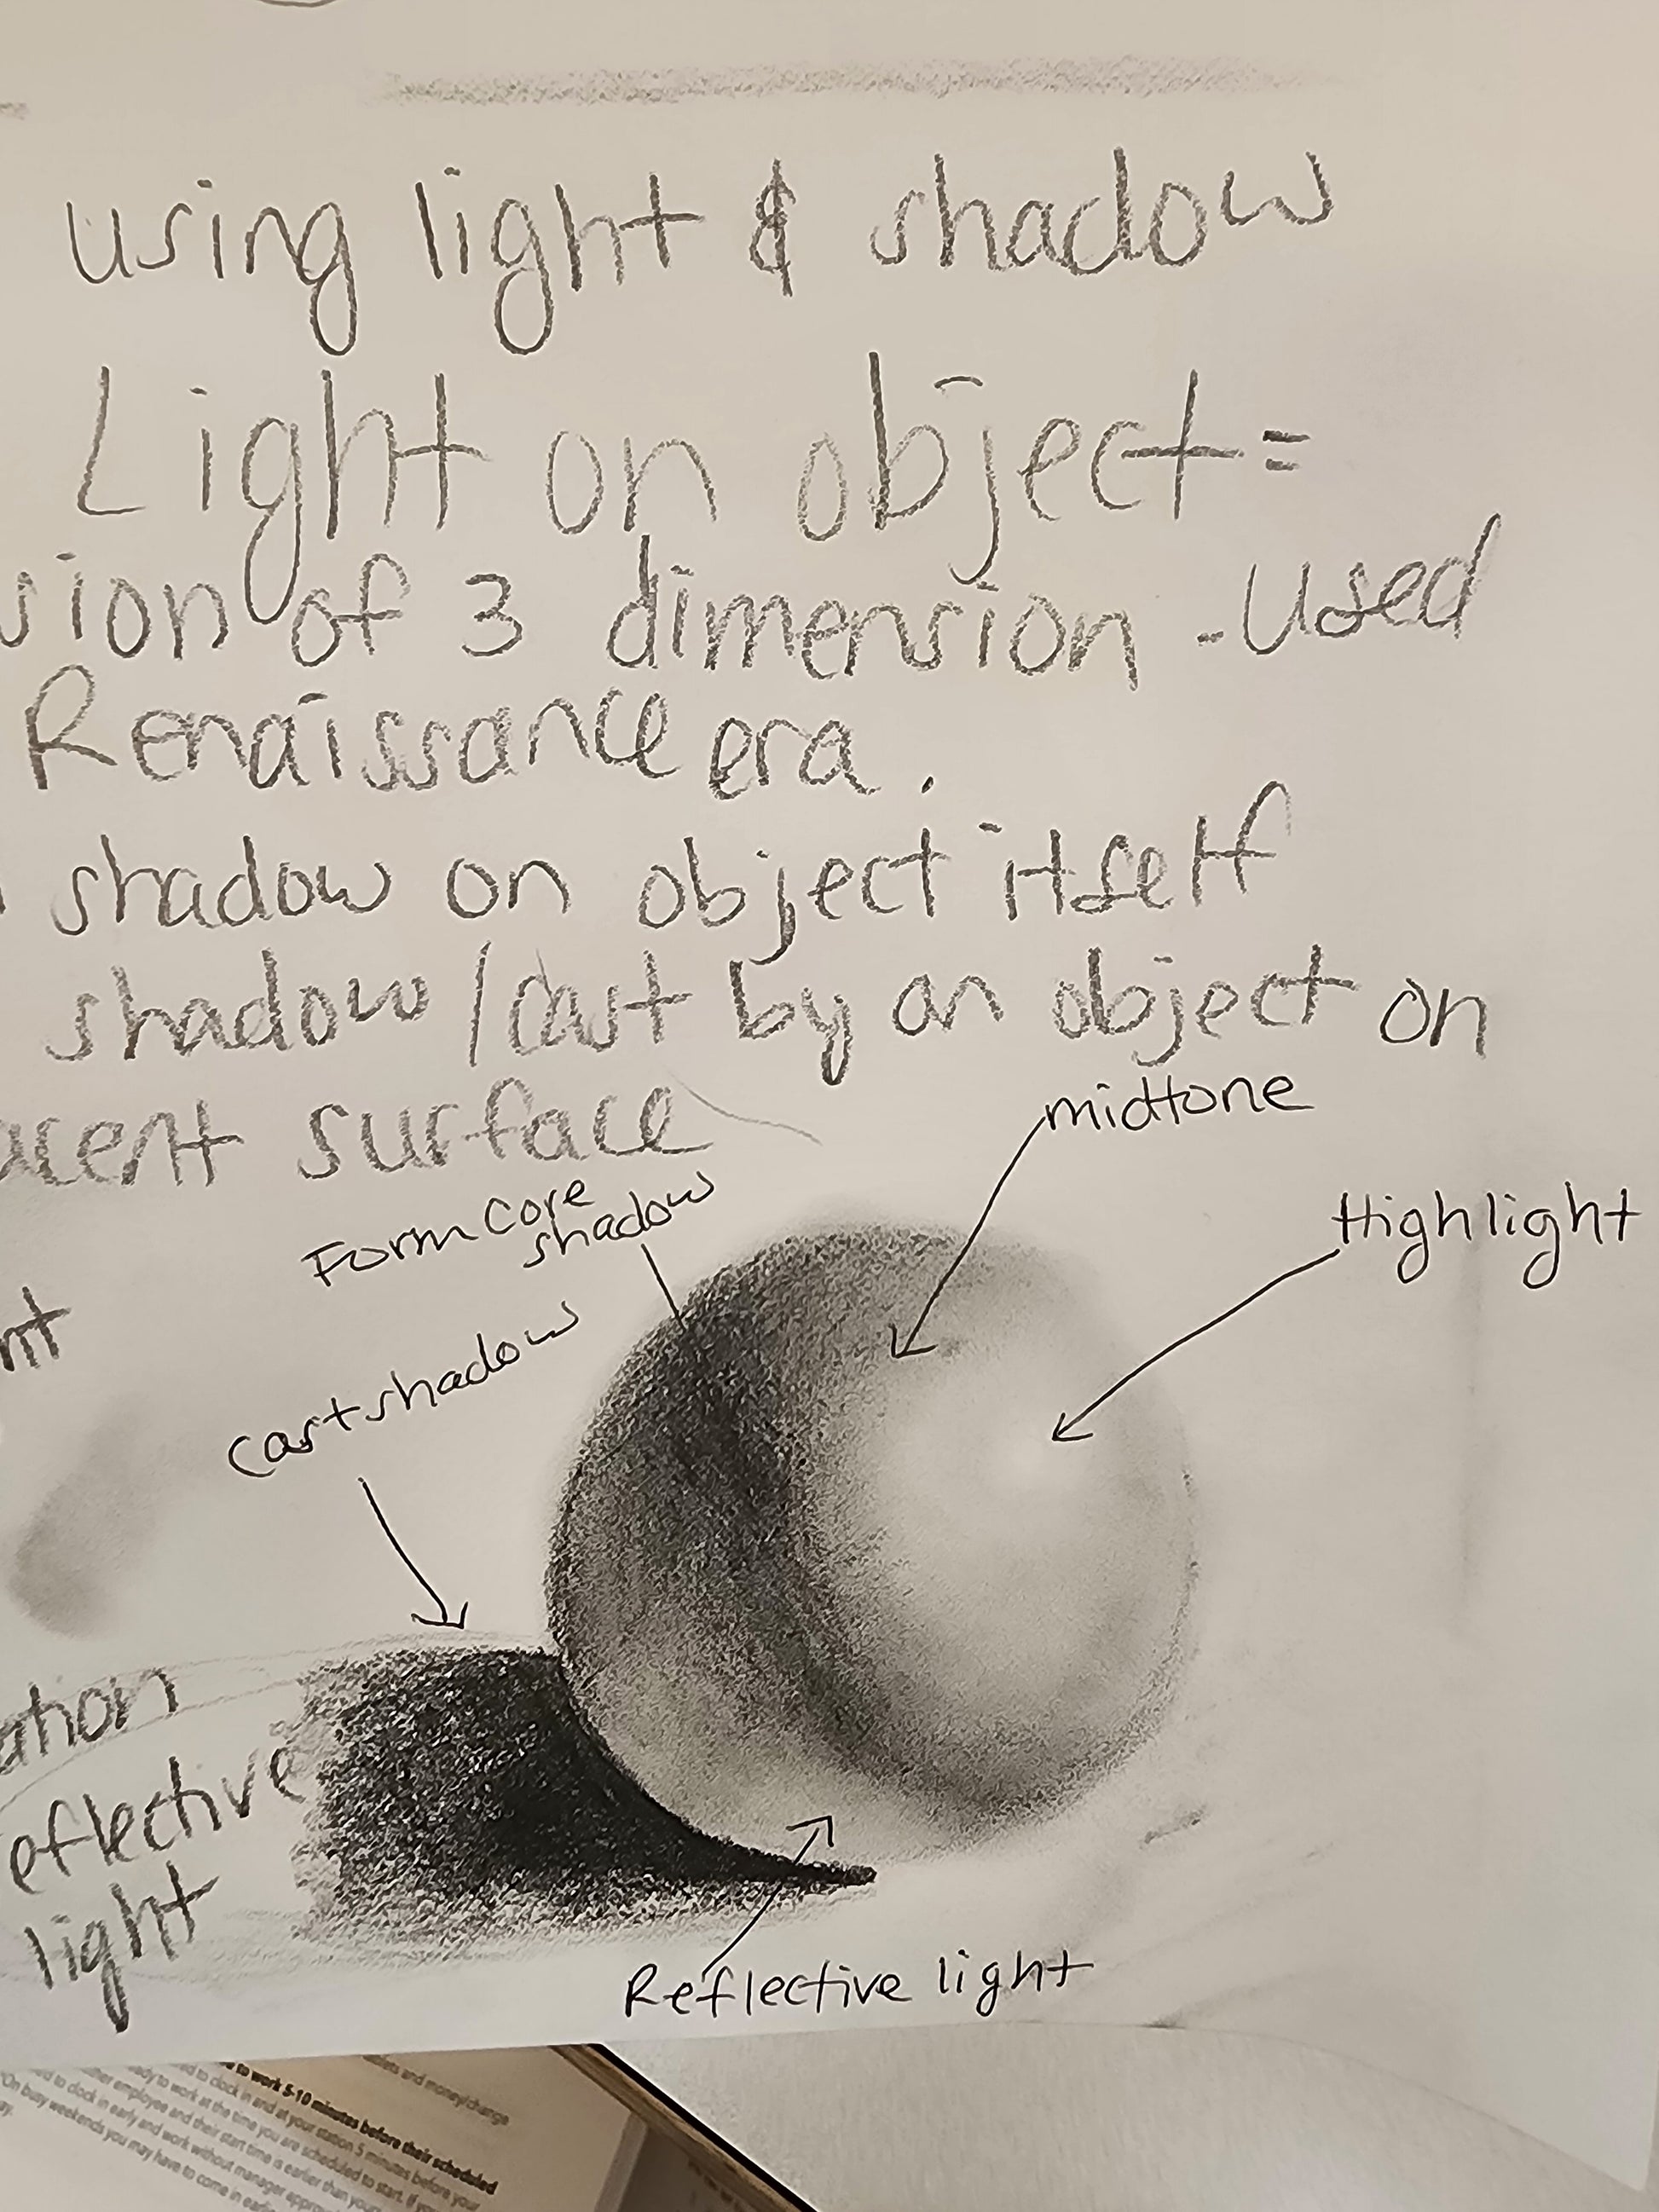 using light & shadow
Light on object =
sion of 3 dimension - used
Renaissance era.
shadow on object itself
shadow / cast by an object on
acent surface
midtone
Form Core
shadow
Highlight
nt
cast shadow
ation
eflective
light
Reflective light
ets and money/change
to work 5-10 minutes before their scheduled
to clock in and at your station 5 minutes before your
ady to work at the time you are scheduled to start. If
ther employee and their start time is earlier than your
ed to clock in early and work without manager
"On busy weekends you may have to come in
ay.